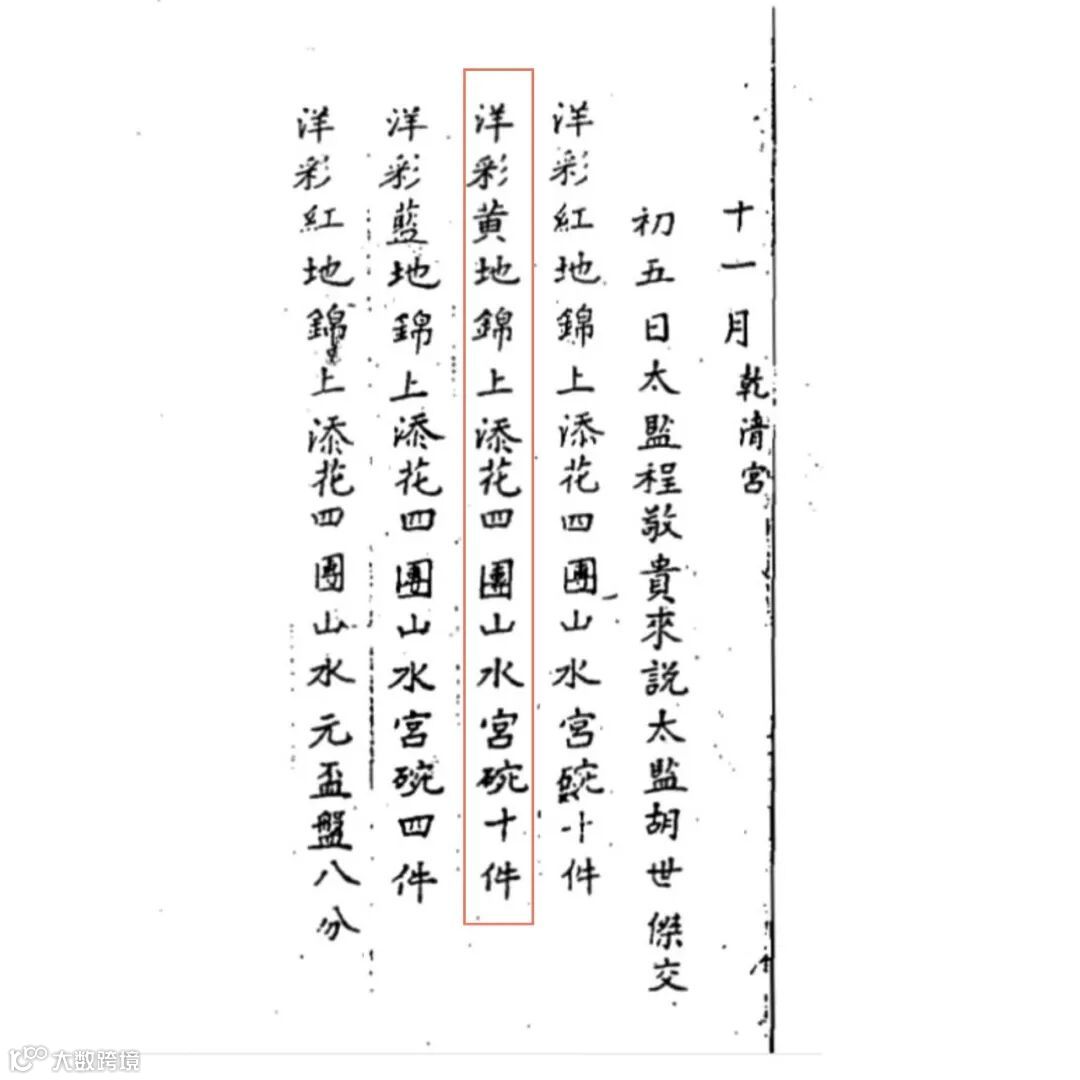 十一月 乾清宮
初五日太監程敬貴來説太監胡世傑交
洋彩紅地錦上添花四團山水宮碗十件
洋彩黄地錦上添花四團山水宮碗十件
洋彩藍地錦上添花四團山水宮碗四件
洋彩紅地錦上添花四團山水元盃盤八分
大数跨境